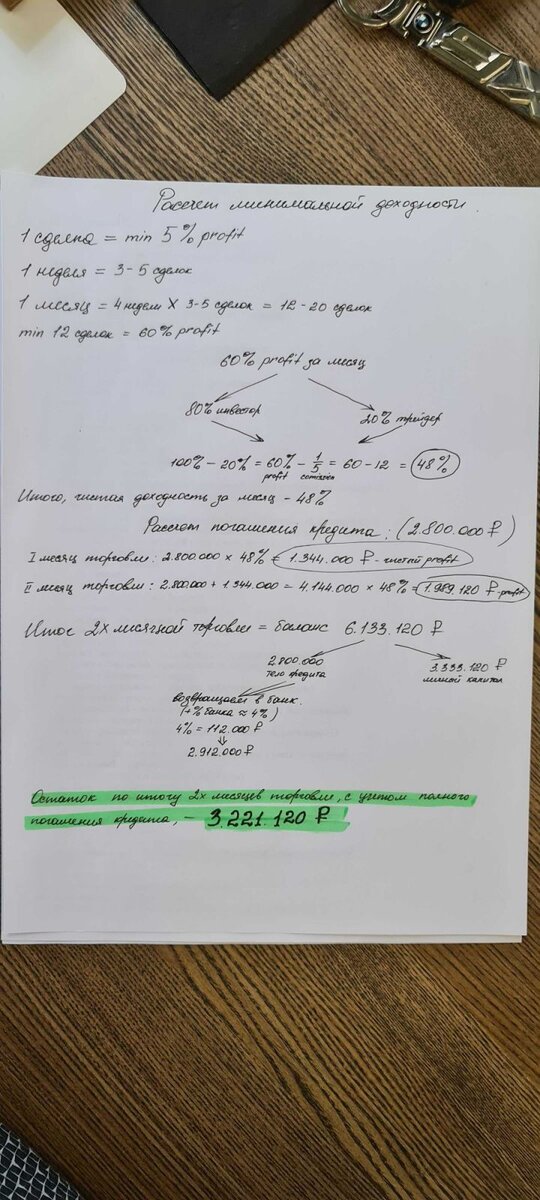 Рассчет минимальной доходности.
1 сделка = min 5% profit
1 неделя = 3-5 сделок
1 месяц = 4 недели X 3-5 сделок = 12-20 сделок
min 12 сделок = 60% profit
60% profit за месяц
80% инвестор 20% трейдер
100% - 20% = 60% - 1/5 = 60 - 12 = 48%
profit comission
Итого, чистая доходность за месяц - 48%
Рассчет погашения кредита: (2.800.000 ₽)
I месяц торговли: 2.800.000 × 48% = 1.344.000 ₽ - чистый profit
II месяц торговли: 2.800.000 + 1.344.000 = 4.144.000 × 48% = 1.989.120 ₽ - profit
Итог 2х месячной торговли = баланс 6.133.120 ₽
2.800.000 3.333.120 ₽
тело кредита личный капитал
возвращаем в банк.
(+% банка ≈ 4%)
4% = 112.000 ₽
2.912.000 ₽
Остаток по итогу 2х месяцев торговли, с учетом полного
погашения кредита, - 3.221.120 ₽